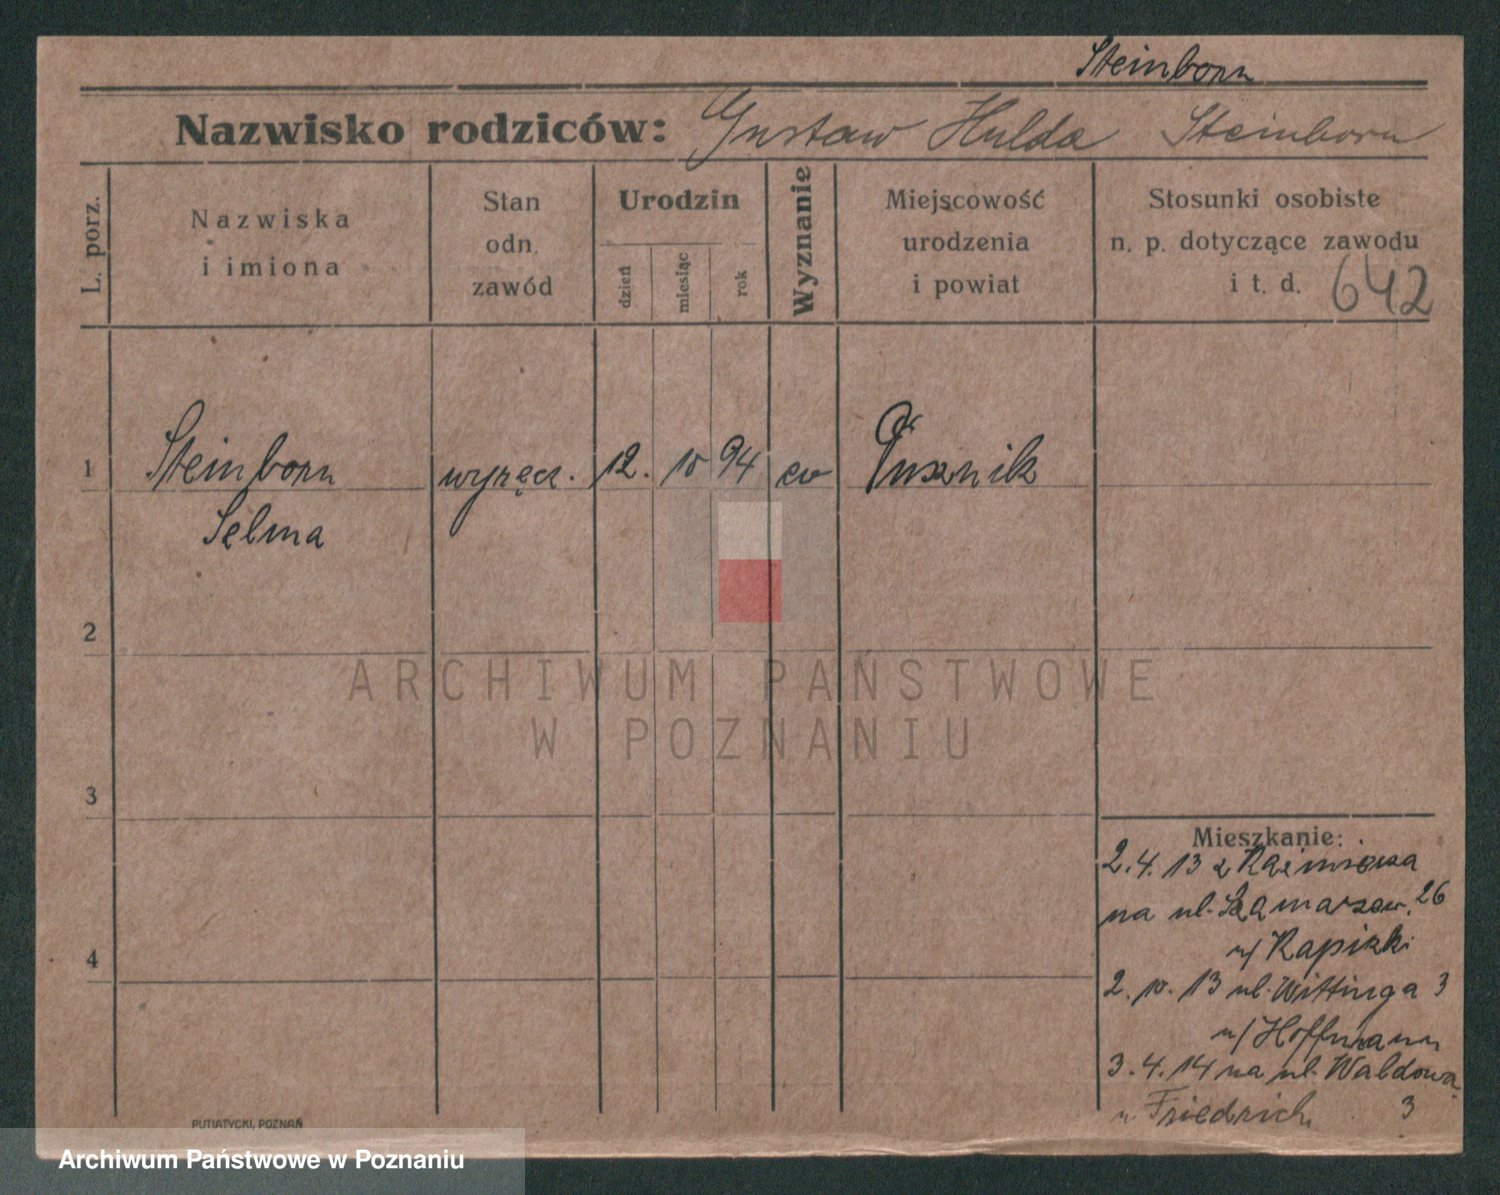 Steinborn
Nazwisko rodziców: Gustaw Hulda Steinborn
L. porz.
Nazwiska
i imiona
Stan
odn.
zawód
Urodzin
dzień
miesiąc
rok
Wyznanie
Miejscowość
urodzenia
i powiat
Stosunki osobiste
n. p. dotyczące zawodu
i t. d. 642
1 Steinborn wyręcz. 12. 10 94 ew Pusznik
Selma
2
ARCHIWUM PAŃSTWOWE
W POZNANIU
3
Mieszkanie:
2. 4. 13 z Kazimierza
na ul. Szamarzew. 26
u/ Rapizki
4
2. 10. 13 ul. Wittinga 3
u/ Hoffmann
3. 4. 14 na ul. Waldowa
u Friedrich 3
PUTIATYCKI, POZNAŃ
Archiwum Państwowe w Poznaniu